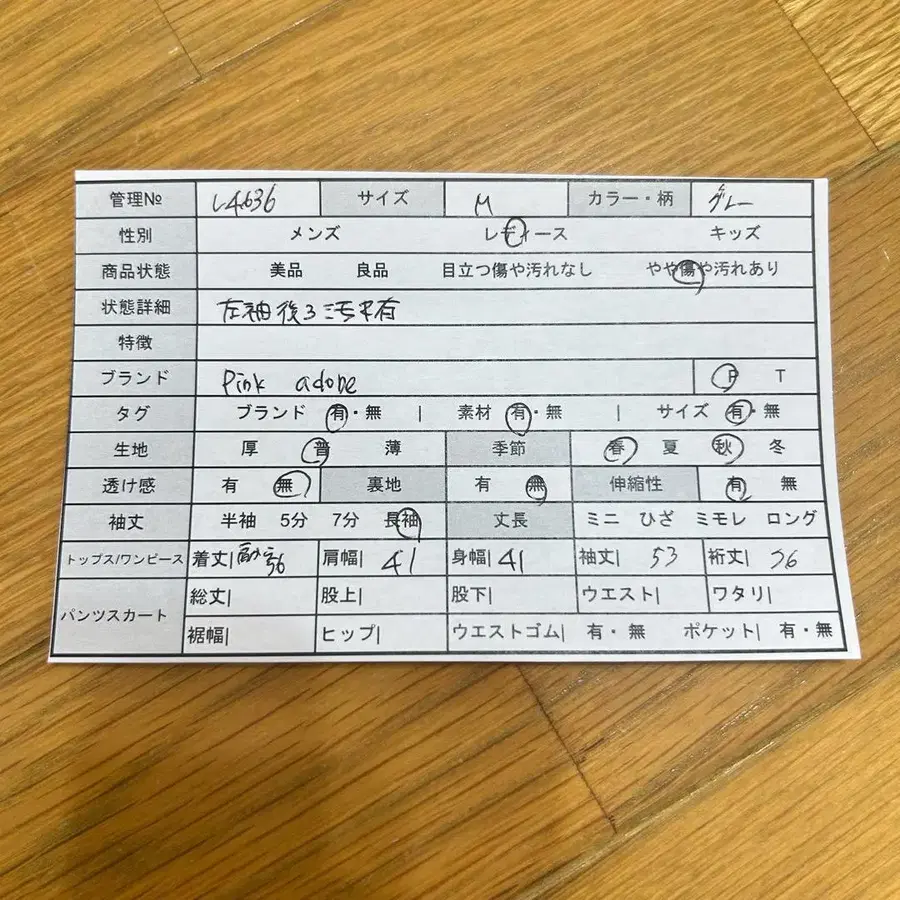 管理№ L4636 サイズ M カラー・柄 グレー
性別 メンズ レディース キッズ
商品状態 美品 良品 目立つ傷や汚れなし やや傷や汚れあり
状態詳細 左袖後ろ汚れ有
特徴
ブランド Pink adobe P T
タグ ブランド 有・無 | 素材 有・無 | サイズ 有・無
生地 厚 普 薄 季節 春 夏 秋 冬
透け感 有 無 裏地 有 無 伸縮性 有 無
袖丈 半袖 5分 7分 長袖 丈長 ミニ ひざ ミモレ ロング
トップス/ワンピース 着丈| 56 肩幅| 41 身幅| 41 袖丈| 53 裄丈| 76
パンツスカート 総丈| 股上| 股下| ウエスト| ワタリ|
裾幅| ヒップ| ウエストゴム| 有・無 ポケット| 有・無